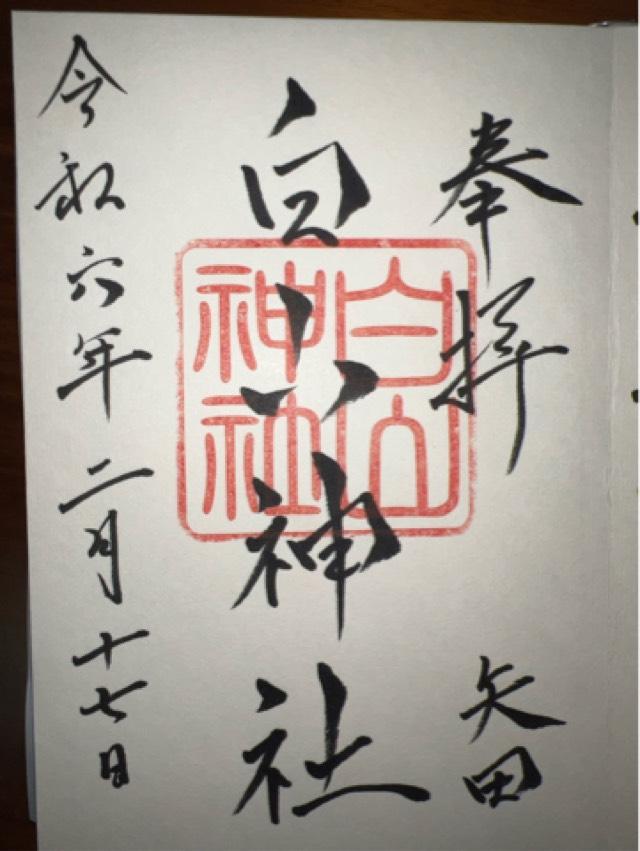 奉拝
矢田
白山神社
白山神社
令和六年二月十七日